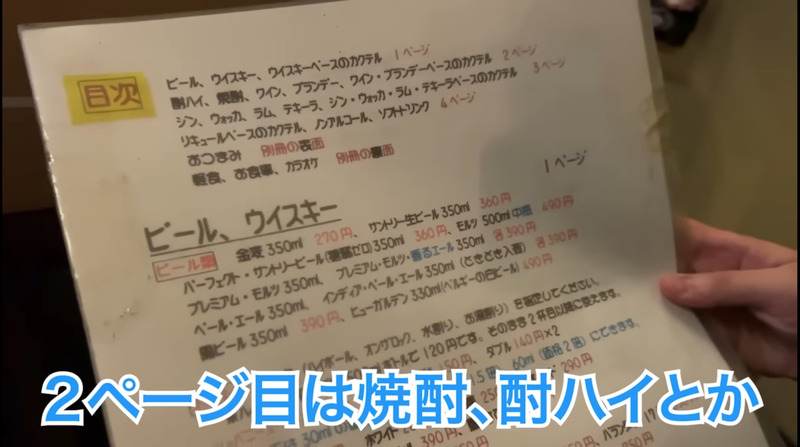 目次
ビール、ウイスキー、ウイスキーベースのカクテル 1ページ
酎ハイ、焼酎、ワイン、ブランデー、ワイン・ブランデーベースのカクテル 2ページ
ジン、ウォッカ、ラム、テキーラ、ジン・ウォッカ・ラム・テキーラベースのカクテル 3ページ
リキュールベースのカクテル、ノンアルコール、ソフトドリンク 4ページ
おつまみ 別冊の表面
軽食、お食事、カラオケ 別冊の裏面
1ページ
ビール、ウイスキー
ビール類 金麦350ml 270円、サントリー生ビール350ml 360円
パーフェクト・サントリービール(糖質ゼロ)350ml 360円、モルツ 500ml中瓶 490円
プレミアム・モルツ350ml、プレミアム・モルツ・香るエール350ml 各390円
ペール・エール350ml、インディア・ペール・エール350ml(ときどき入荷) 各390円
黒ビール350ml 390円、ヒューガルデン330ml(ベルギーの白ビール) 490円
ハイボール、オンザロック、水割り、お湯割り)を指定してください。
ボトルで120円です。そのまま2杯目以降に使えます。
60ml(価格2倍)にできます。
ダブル 140円×2
290円
ホワイト
390円
350ml
2ページ目は焼酎、酎ハイとか